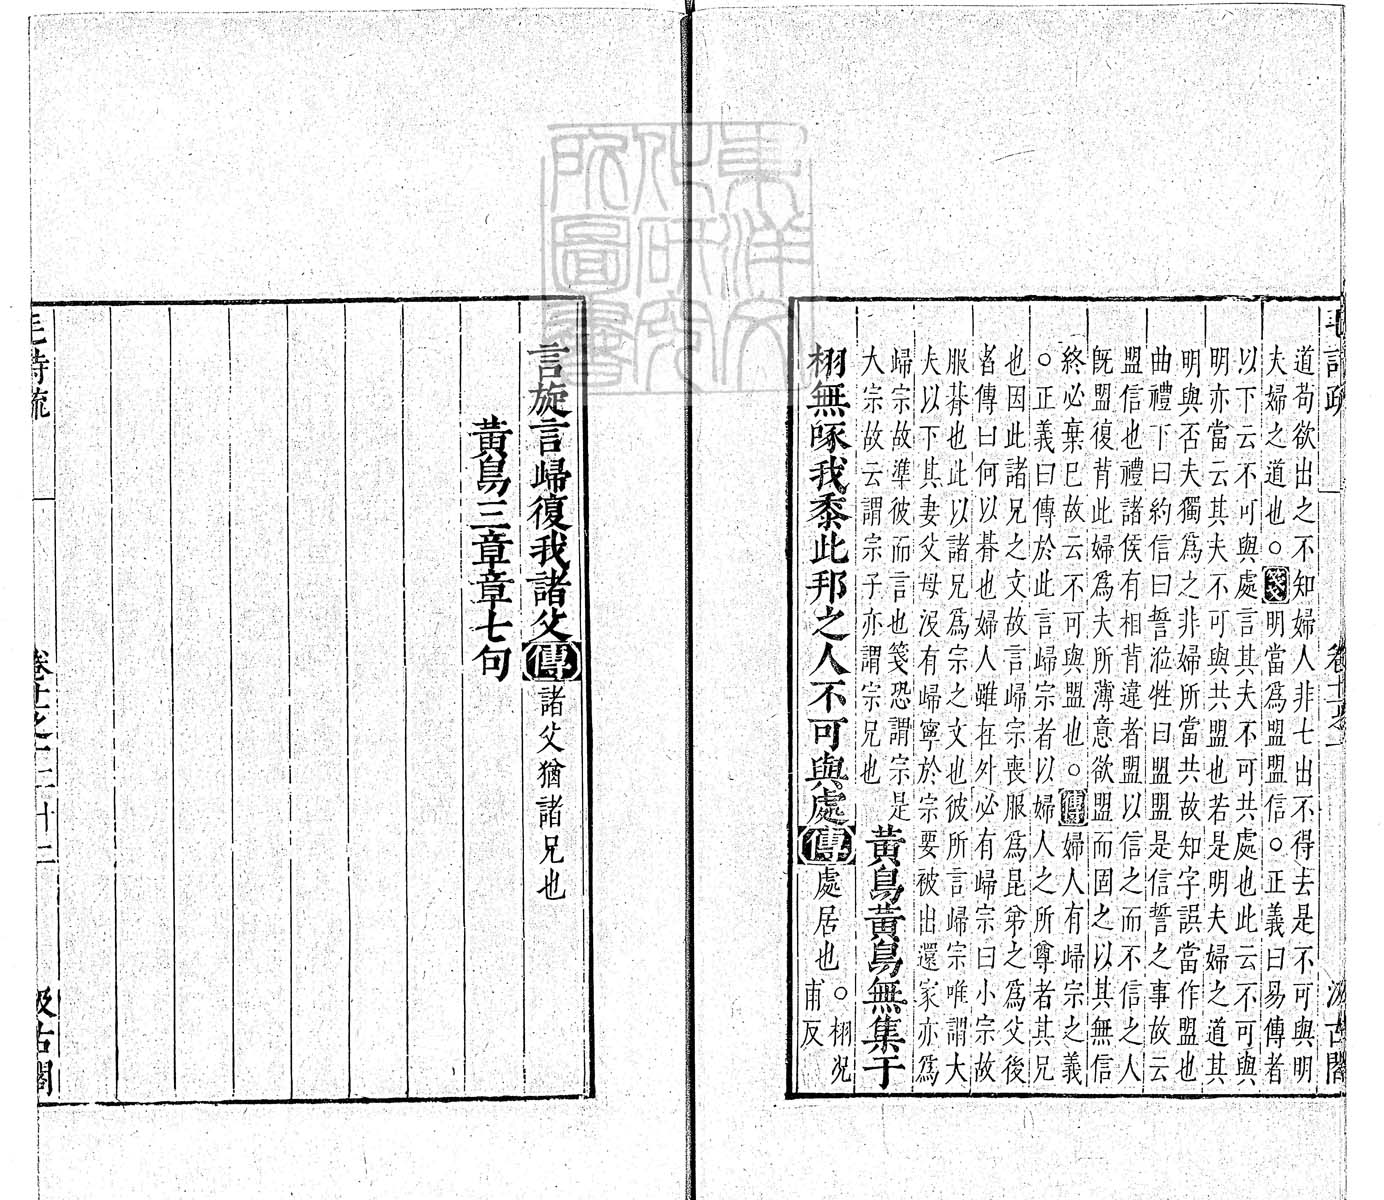 毛詩疏 卷十一之一 汲古閣
道苟欲出之不知婦人非七出不得去是不可與明
夫婦之道也○箋明當爲盟盟信○正義曰易傳者
以下云不可與處言其夫不可共處也此云不可與
明亦當云其夫不可與共盟也若是明夫婦之道其
明與否夫獨爲之非婦所當共故知字誤當作盟也
曲禮下曰約信曰誓涖牲曰盟盟是信誓之事故云
盟信也禮諸侯有相背違者盟以信之而不信之人
旣盟復背此婦爲夫所薄意欲盟而固之以其無信
終必棄已故云不可與盟也○傳婦人有歸宗之義
○正義曰傳於此言歸宗者以婦人之所尊者其兄
也因此諸兄之文故言歸宗喪服爲昆弟之爲父後
者傳曰何以朞也婦人雖在外必有歸宗曰小宗故
服朞也此以諸兄爲宗之文也彼所言歸宗唯謂大
夫以下其妻父母沒有歸寧於宗要被出還家亦爲
歸宗故準彼而言也箋恐謂宗是
大宗故云謂宗子亦謂宗兄也
黃鳥黃鳥無集于
栩無啄我黍此邦之人不可與處傳處居也○栩况
甫反
言旋言歸復我諸父傳諸父猶諸兄也
黃鳥三章章七句
毛詩疏 卷十一之一 二十二 汲古閣
東洋文
化研究
所圖書